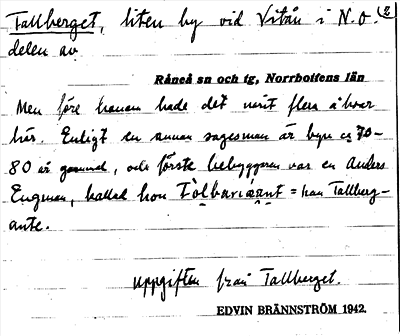 Tallberget, liten by vid Vitån i N.O. 2
delen av
Råneå sn och tg, Norrbottens län
Men före honom hade det varit flera åboar
här. Enligt en annan sagesman är byn ca 70-
80 år gammal, och förste bebyggaren var en Anders
Engman, kallad hon = han Tallberg-
ante.
Uppgiften från Tallberget.
EDVIN BRÄNNSTRÖM 1942.